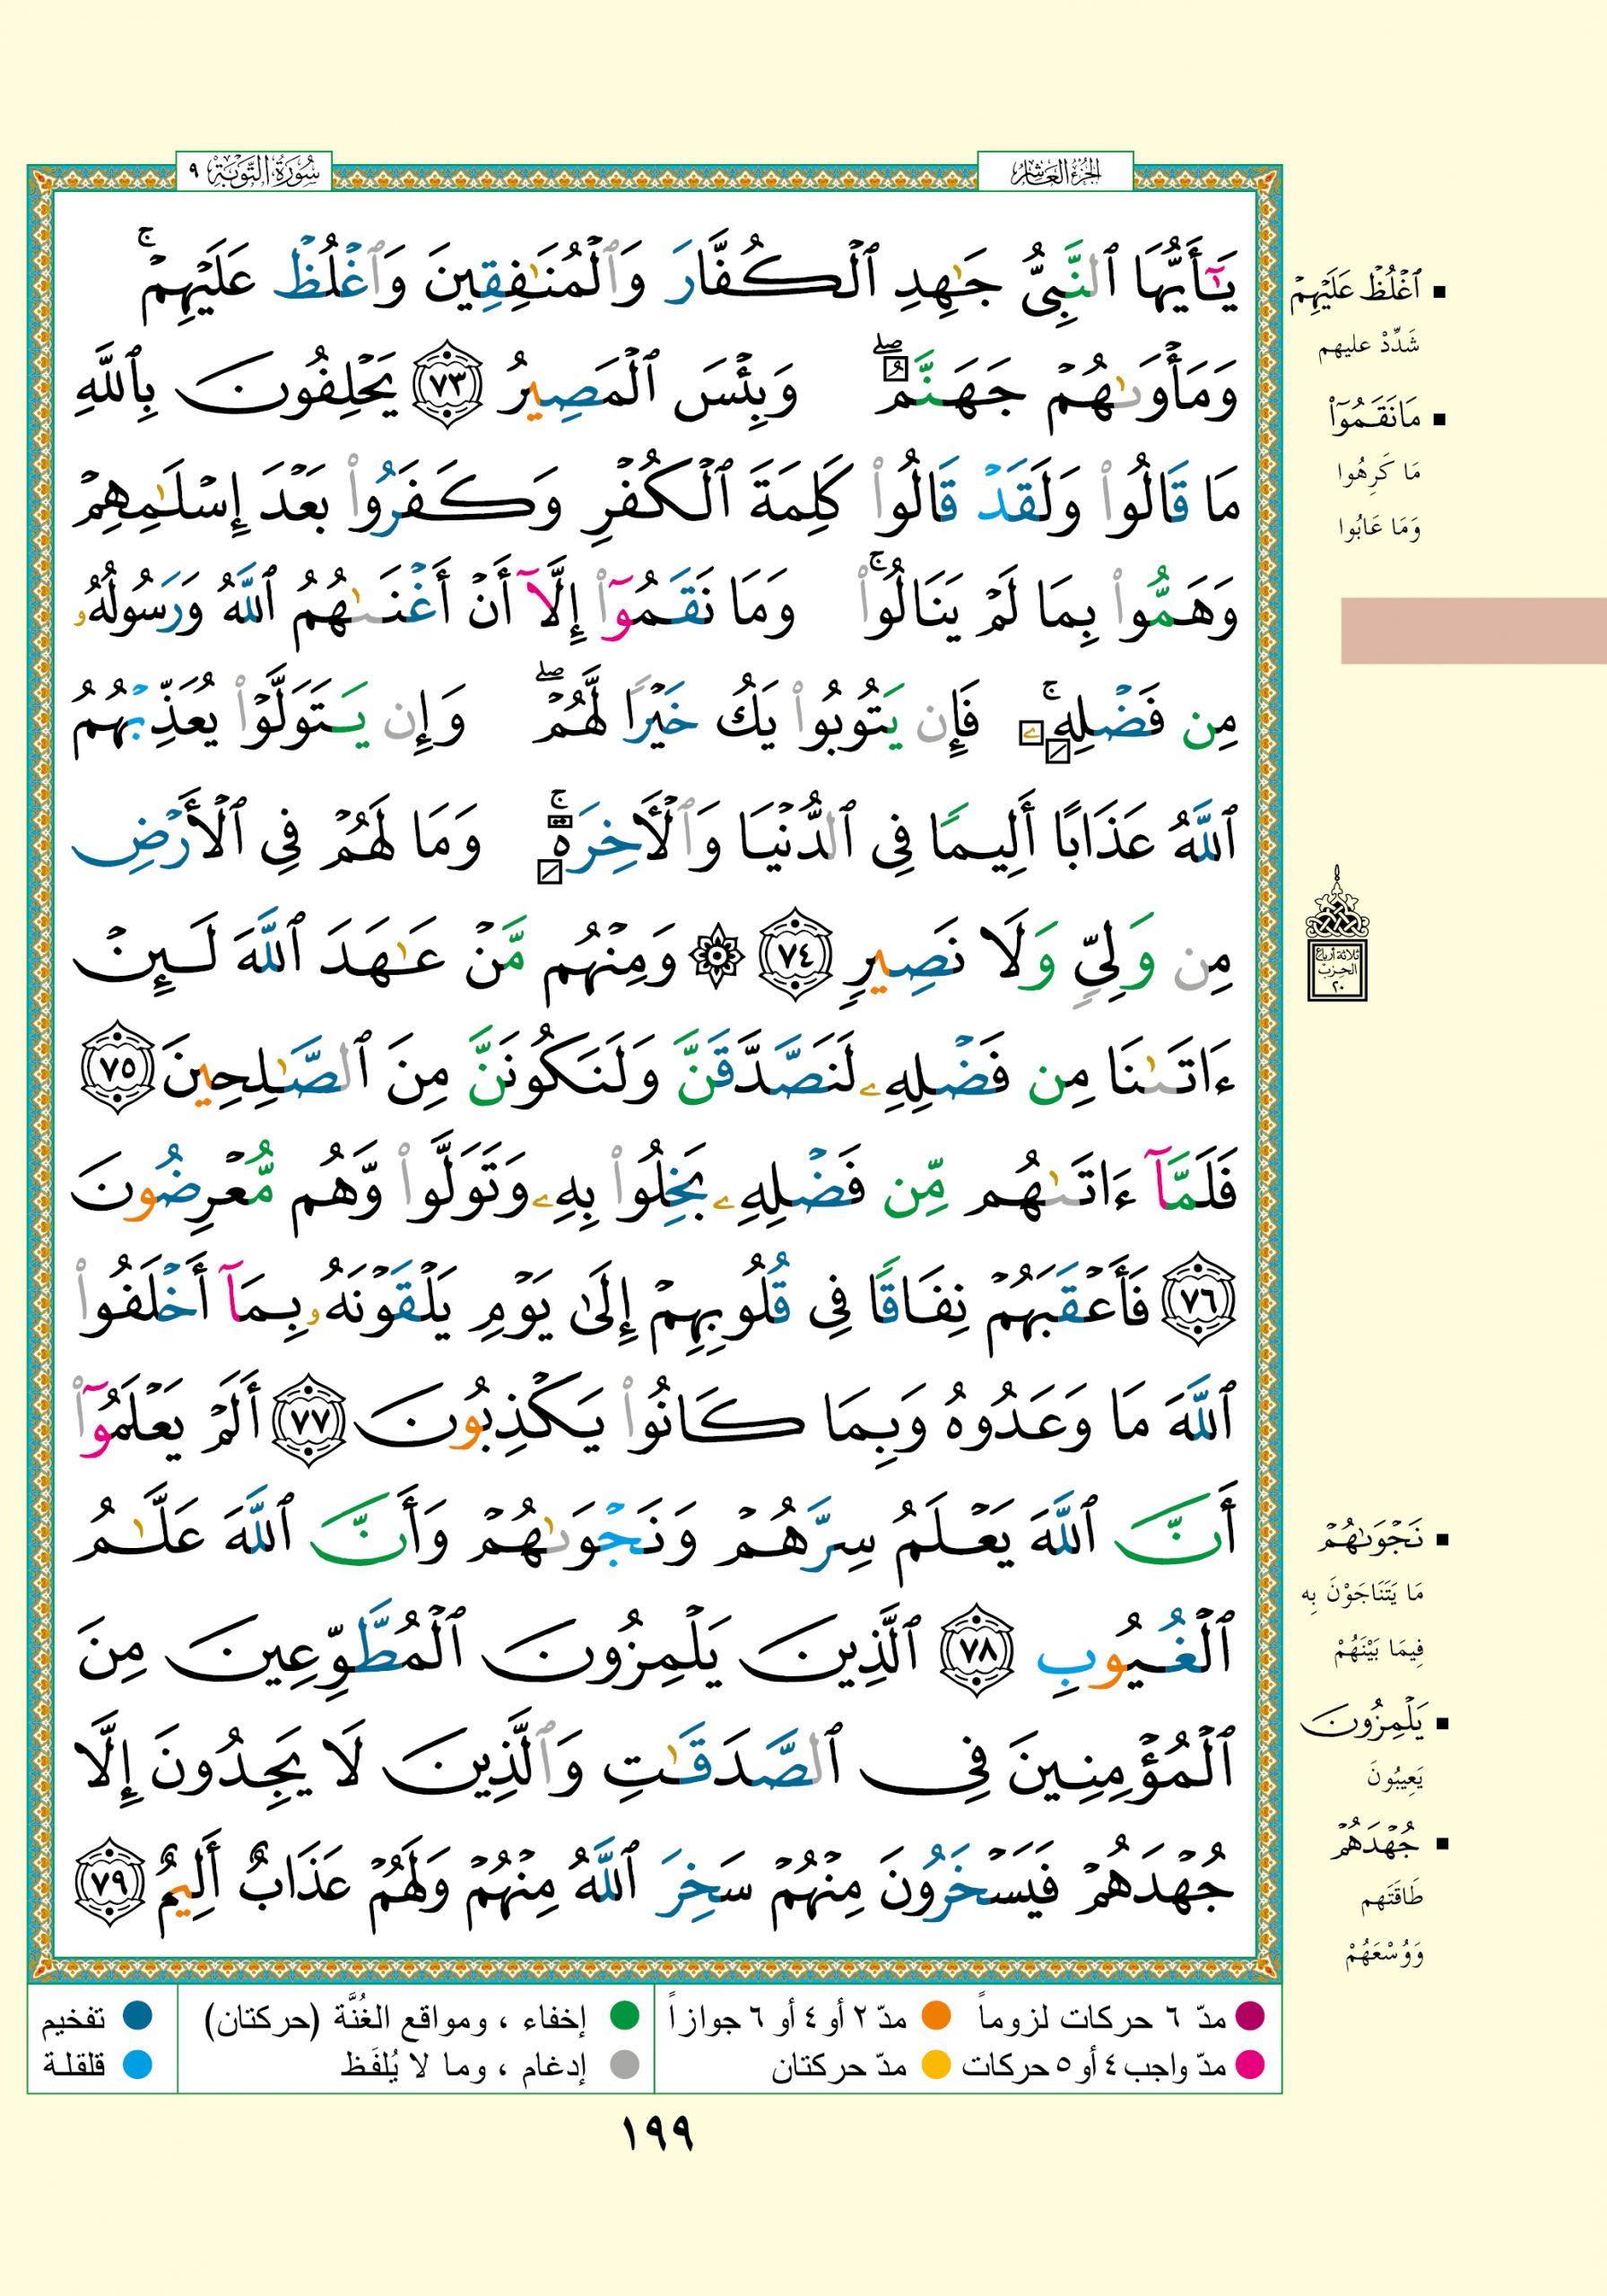 الجزء العاشر
سورة التوبة ٩
يَـٰٓأَيُّهَا ٱلنَّبِىُّ جَـٰهِدِ ٱلْكُفَّارَ وَٱلْمُنَـٰفِقِينَ وَٱغْلُظْ عَلَيْهِمْ ۚ
وَمَأْوَىٰهُمْ جَهَنَّمُ ۖ وَبِئْسَ ٱلْمَصِيرُ ٧٣ يَحْلِفُونَ بِٱللَّهِ
مَا قَالُوا۟ وَلَقَدْ قَالُوا۟ كَلِمَةَ ٱلْكُفْرِ وَكَفَرُوا۟ بَعْدَ إِسْلَـٰمِهِمْ
وَهَمُّوا۟ بِمَا لَمْ يَنَالُوا۟ ۚ وَمَا نَقَمُوٓا۟ إِلَّآ أَنْ أَغْنَىٰهُمُ ٱللَّهُ وَرَسُولُهُۥ
مِن فَضْلِهِۦ ۚ فَإِن يَتُوبُوا۟ يَكُ خَيْرًا لَّهُمْ ۖ وَإِن يَتَوَلَّوْا۟ يُعَذِّبْهُمُ
ٱللَّهُ عَذَابًا أَلِيمًا فِى ٱلدُّنْيَا وَٱلْـَٔاخِرَةِ ۚ وَمَا لَهُمْ فِى ٱلْأَرْضِ
مِن وَلِىٍّ وَلَا نَصِيرٍ ٧٤ ۞ وَمِنْهُم مَّنْ عَـٰهَدَ ٱللَّهَ لَئِنْ
ءَاتَىٰنَا مِن فَضْلِهِۦ لَنَصَّدَّقَنَّ وَلَنَكُونَنَّ مِنَ ٱلصَّـٰلِحِينَ ٧٥
فَلَمَّآ ءَاتَىٰهُم مِّن فَضْلِهِۦ بَخِلُوا۟ بِهِۦ وَتَوَلَّوا۟ وَّهُم مُّعْرِضُونَ
٧٦ فَأَعْقَبَهُمْ نِفَاقًا فِى قُلُوبِهِمْ إِلَىٰ يَوْمِ يَلْقَوْنَهُۥ بِمَآ أَخْلَفُوا۟
ٱللَّهَ مَا وَعَدُوهُ وَبِمَا كَانُوا۟ يَكْذِبُونَ ٧٧ أَلَمْ يَعْلَمُوٓا۟
أَنَّ ٱللَّهَ يَعْلَمُ سِرَّهُمْ وَنَجْوَىٰهُمْ وَأَنَّ ٱللَّهَ عَلَّـٰمُ
ٱلْغُيُوبِ ٧٨ ٱلَّذِينَ يَلْمِزُونَ ٱلْمُطَّوِّعِينَ مِنَ
ٱلْمُؤْمِنِينَ فِى ٱلصَّدَقَـٰتِ وَٱلَّذِينَ لَا يَجِدُونَ إِلَّا
جُهْدَهُمْ فَيَسْخَرُونَ مِنْهُمْ سَخِرَ ٱللَّهُ مِنْهُمْ وَلَهُمْ عَذَابٌ أَلِيمٌ ٧٩
ٱغْلُظْ عَلَيْهِمْ
شَدِّدْ عليهم
مَا نَقَمُوٓا۟
مَا كَرِهُوا
وَمَا عَابُوا
ثلاثة أرباع
الحزب
٢٠
نَجْوَىٰهُمْ
مَا يَتَنَاجَوْنَ بِه
فِيمَا بَيْنَهُمْ
يَلْمِزُونَ
يَعِيبُونَ
جُهْدَهُمْ
طَاقَتَهم
وَوُسْعَهُمْ
مدّ ٦ حركات لزوماً
مدّ ٢ أو ٤ أو ٦ جوازاً
إخفاء ، ومواقع الغُنَّة (حركتان)
تفخيم
مدّ واجب ٤ أو ٥ حركات
مدّ حركتان
إدغام ، وما لا يُلفَظ
قلقلة
١٩٩